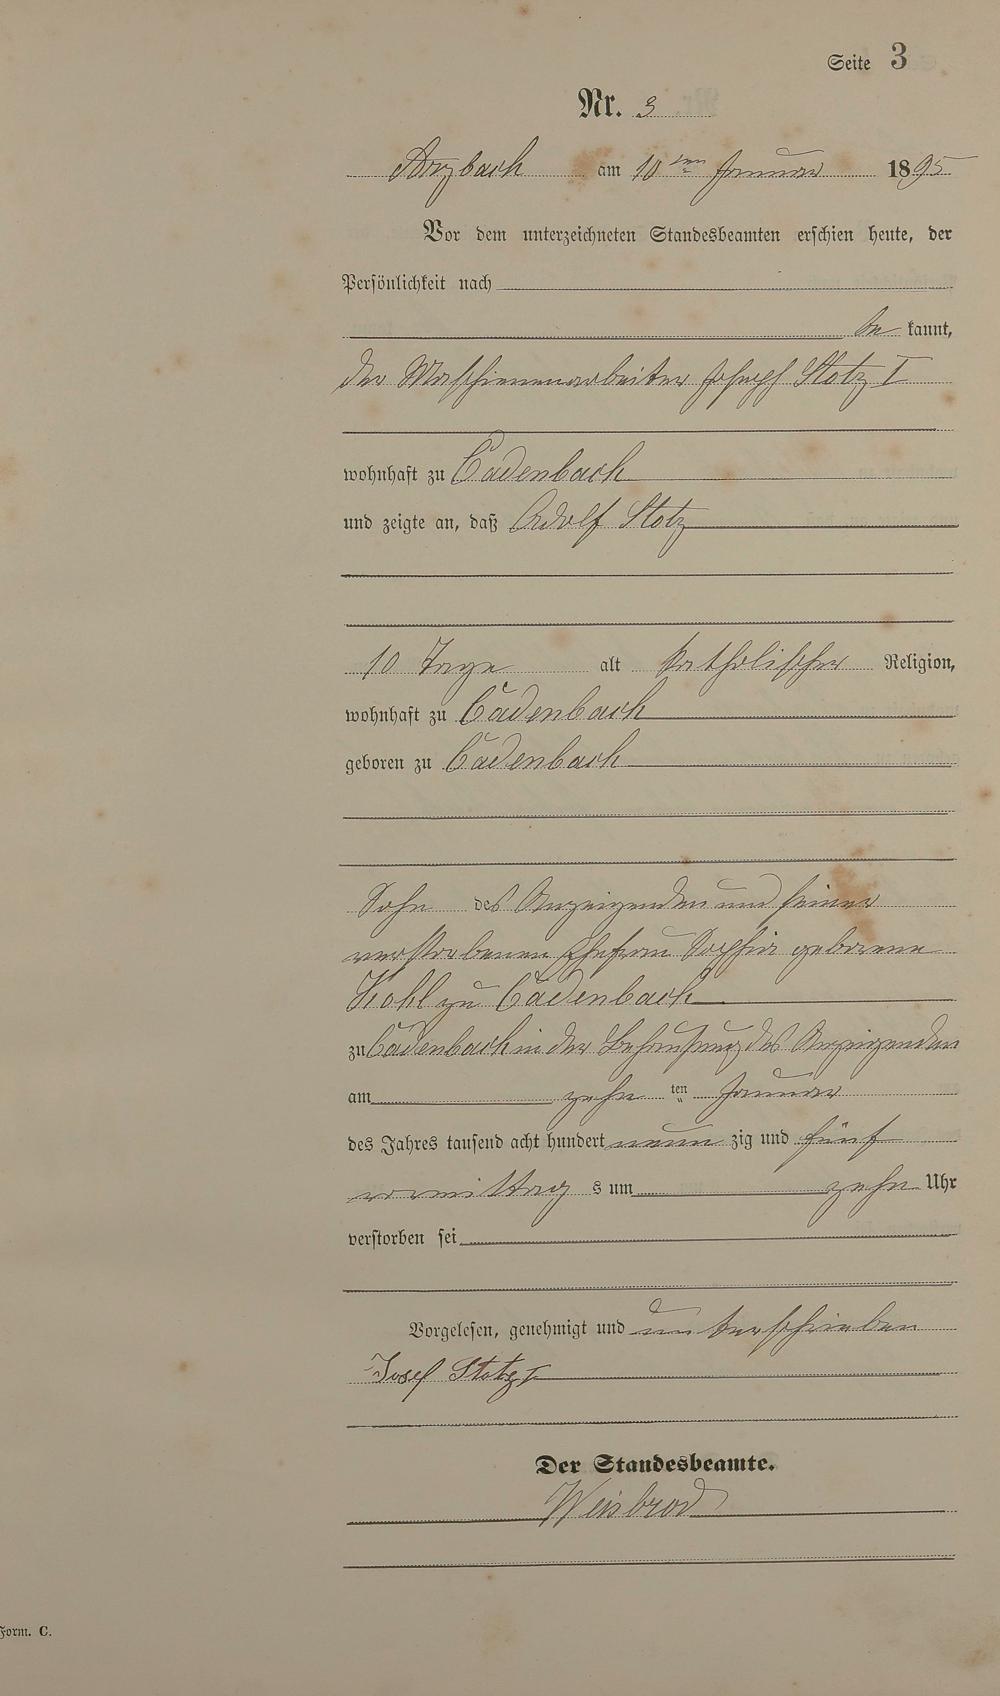 Seite 3
Nr. 3
Arzbach am 10ten Januar 1895
Vor dem unterzeichneten Standesbeamten erschien heute, der
Persönlichkeit nach
be kannt,
der Maschienenarbeiter Joseph Stotz I
wohnhaft zu Cadenbach
und zeigte an, daß Adolf Stotz
10 Tage alt katholischer Religion,
wohnhaft zu Cadenbach
geboren zu Cadenbach
Sohn des Anzeigenden und seiner
verstorbenen Ehefrau Sophia geborene
Kohl zu Cadenbach
zu Cadenbach in der Behausung des Anzeigenden
am zehn ten Januar
des Jahres tausend acht hundert neun zig und fünf
vormittag s um zehn Uhr
verstorben sei
Vorgelesen, genehmigt und unterschrieben
Josef Stotz I
Der Standesbeamte.
Weisbrod
Form. C.